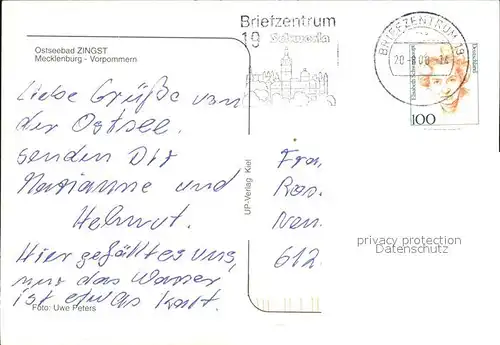 Ostseebad ZINGST
Mecklenburg - Vorpommern
Briefzentrum
19 Schwerin
BRIEFZENTRUM 19
20.-8.00-14
Deutschland
100
Liebe Grüße von
der Ostsee.
senden Dir
Marianne und
Helmut.
Hier gefällt es uns,
nur das Wasser
ist etwas kalt.
Foto: Uwe Peters
UP-Verlag Kiel
Frau
Ros.
Neu.
612.
privacy protection
Datenschutz